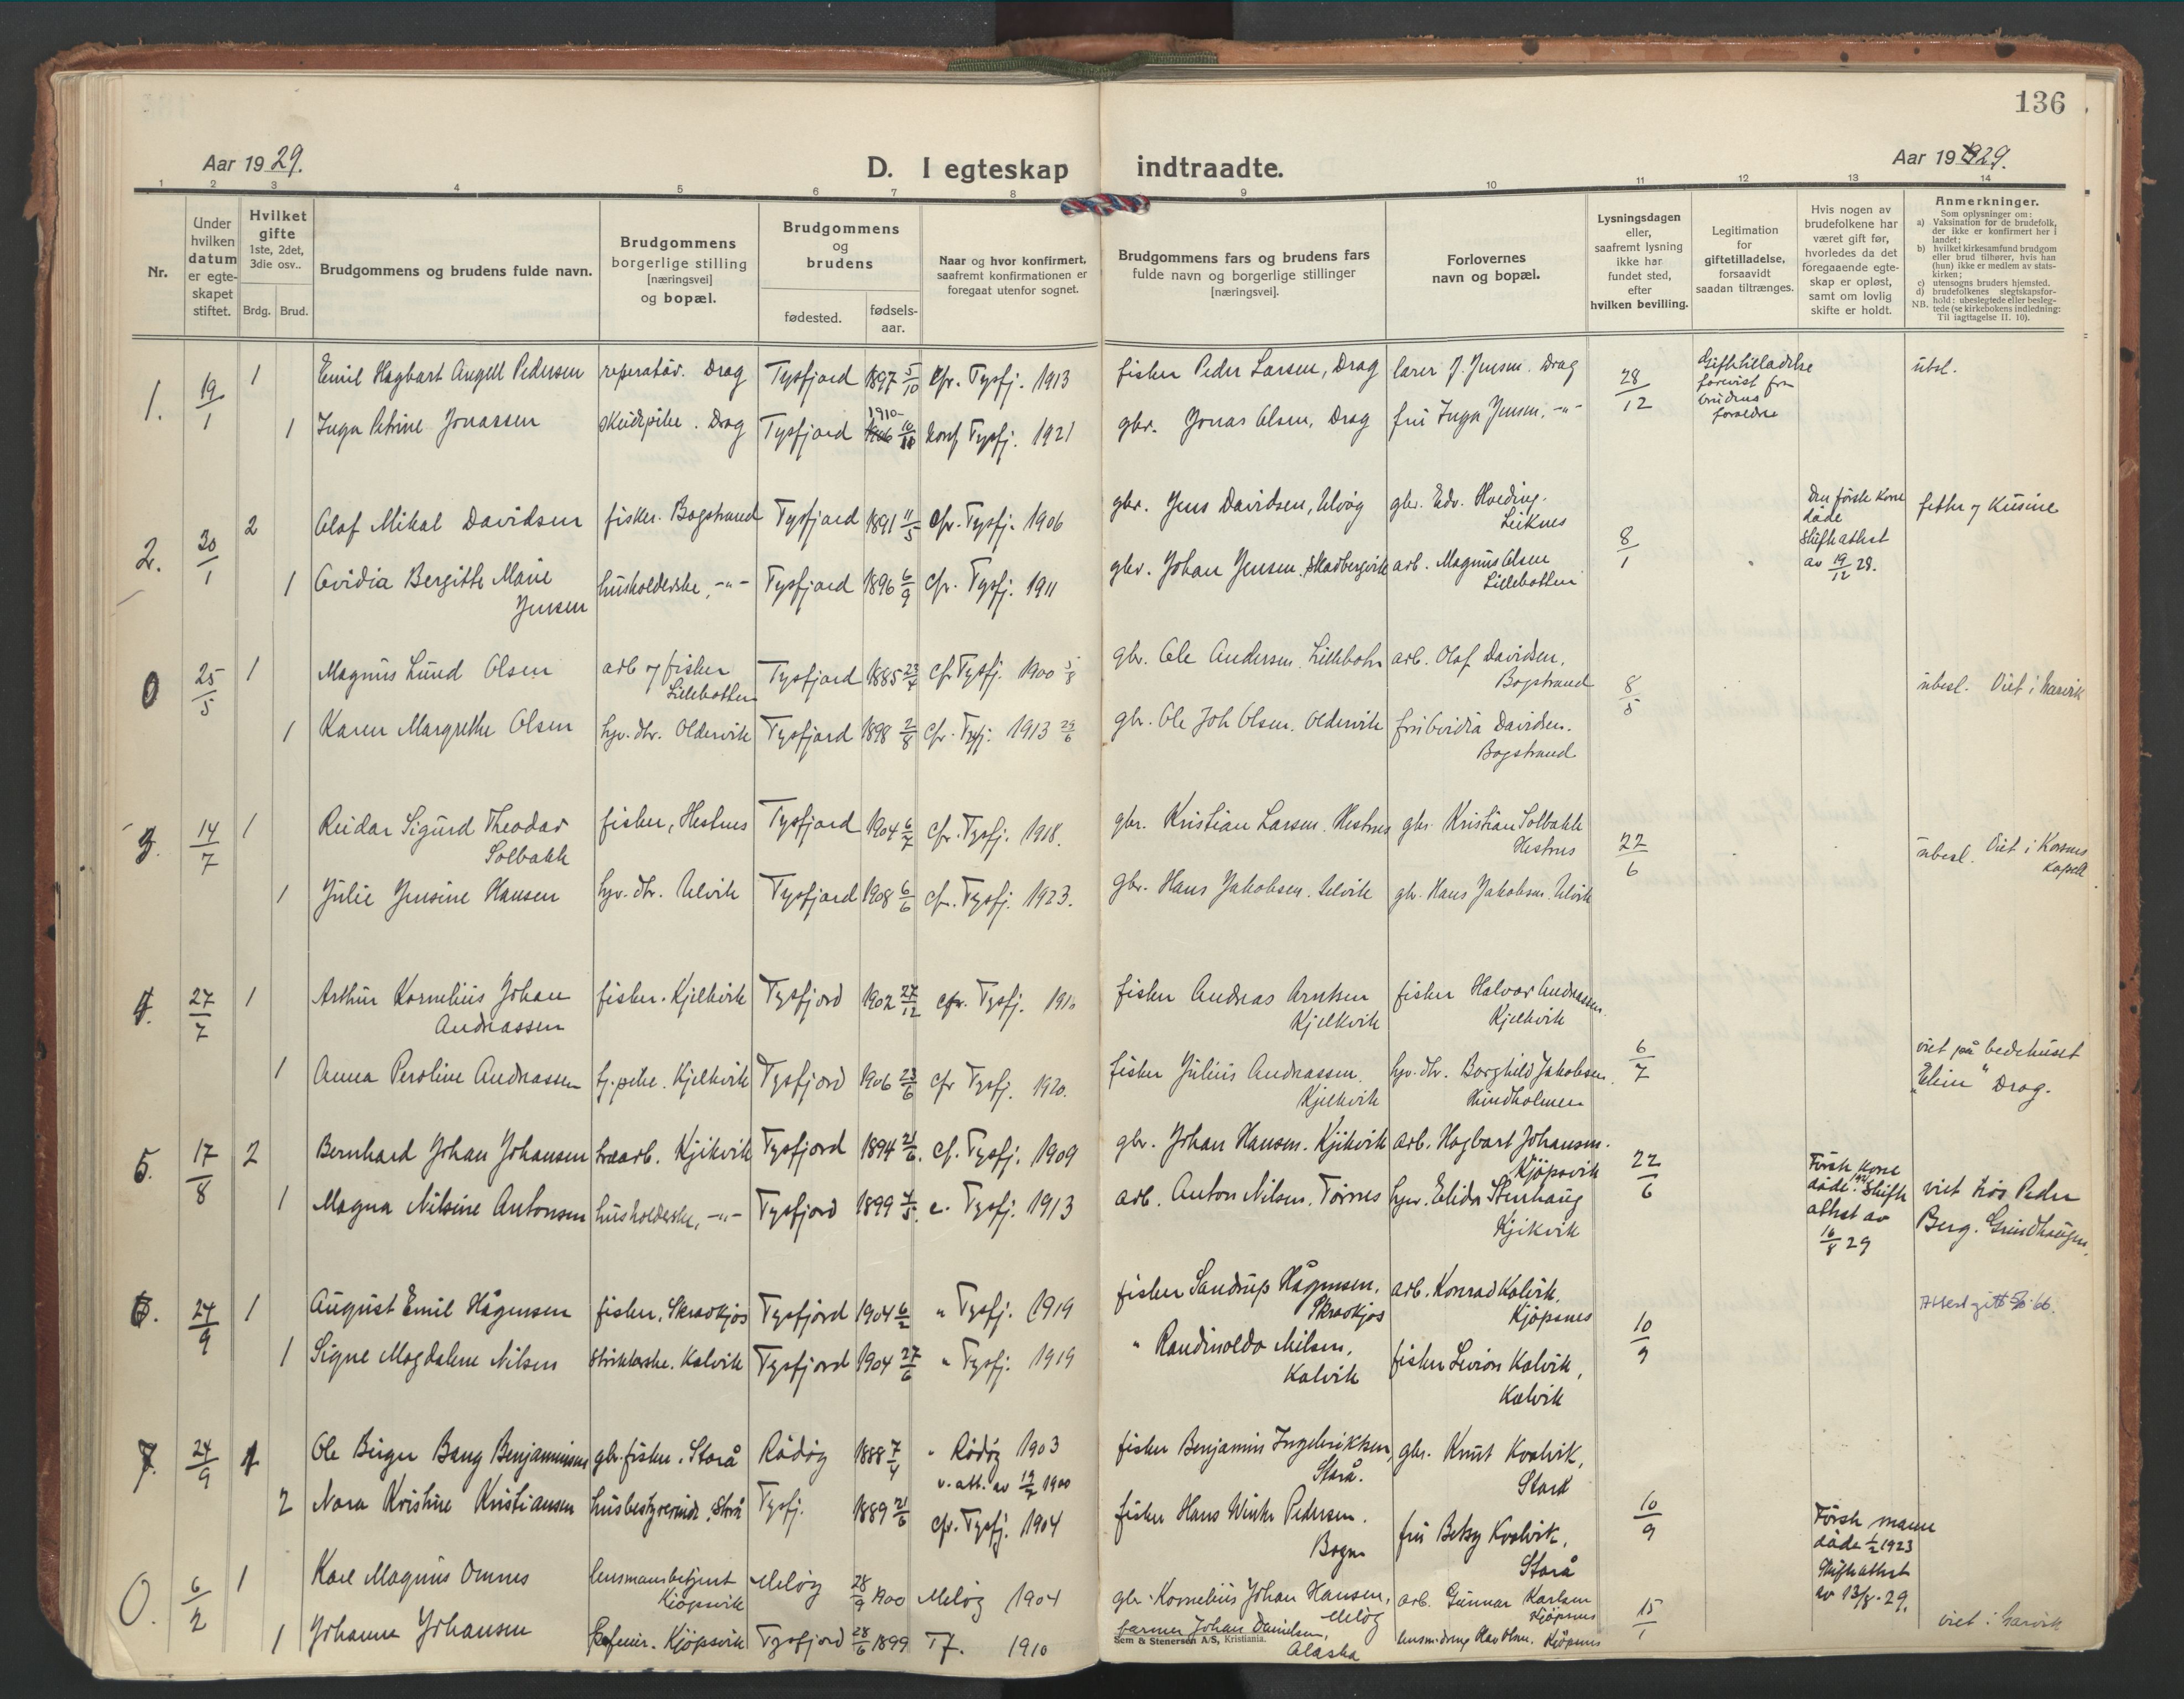 136
Aar 1929.
D. I egteskap indtraadte.
Aar 1929.
1 2 3 4 5 6 7 8 9 10 11 12 13 14
Nr.
Under hvilken datum er egte-skapet stiftet.
Hvilket gifte 1ste, 2det, 3die osv..
Brdg. Brud.
Brudgommens og brudens fulde navn.
Brudgommens borgerlige stilling [næringsvei] og bopæl.
Brudgommens og brudens
fødested.
fødsels-aar.
Naar og hvor konfirmert, saafremt konfirmationen er foregaat utenfor sognet.
Brudgommens fars og brudens fars fulde navn og borgerlige stillinger [næringsvei].
Forlovernes navn og bopæl.
Lysningsdagen eller, saafremt lysning ikke har fundet sted, efter hvilken bevilling.
Legitimation for giftetilladelse, forsaavidt saadan tiltrænges.
Hvis nogen av brudefolkene har været gift før, hvorledes da det foregaaende egte-skap er opløst, samt om lovlig skifte er holdt.
Anmerkninger.
Som oplysninger om:
a) Vaksination for de brudefolk, der ikke er konfirmert her i landet;
b) hvilket kirkesamfund brudgom eller brud tilhører, hvis han (hun) ikke er medlem av stats-kirken;
c) utensogns bruders hjemsted.
d) brudefolkenes slegtskapsfor-hold: ubeslegtede eller besleg-tede (se kirkebokens indledning: Til iagttagelse II. 10).
NB.
1. 19/1 1 Emil Hagbart Angell Pedersen reperatør. Drag Tysfjord 1897 5/10 Cfr. Tysfj. 1913 fisker Peder Larsen, Drag lærer J. Jensen. Drag 28/12 Giftetilladelse forevist fra brudens foreldre ubsl.
1 Inga Petrine Jonassen Drag Tysfjord 1910 konf Tysfj. 1921 gbr. Jonas Olsen, Drag fru Inga Jensen. -"-
2. 30/1 2 Olaf Mikal Davidsen fisker. Bogstrand Tysfjord 1891 11/5 Cfr. Tysfj. 1906 gbr. Jens Davidsen, Ulvåg gbr. Edv. Hveding. Leiknes 8/1 Den første kone døde Skifteattest av 19/12 28. fetter og kusine
1 Ovidia Bergitte Marie Jensen husholderske, -"- Tysfjord 1896 6/9 Cfr. Tysfj. 1911 gbr. Johan Jensen. Skarbergvik arb. Magnus Olsen Lillebotten
0 25/5 1 Magnus Lund Olsen arb og fisker Lillebotten Tysfjord 1885 23/4 Cfr Tysfj. 1900 5/8 gbr. Ole Andersen. Lillebotn arb. Olaf Davidsen. Bogstrand 8/5 ubesl. Viet i Narvik
1 Karen Margrethe Olsen hjv. dtr. Oldervik Tysfjord 1898 2/8 Cfr. Tysfj. 1913 29/6 gbr. Ole Joh Olsen. Oldervik fru Ovidia Davidsen. Bogstrand
3. 14/7 1 Reidar Sigurd Theodor Solbakk fisker, Hestnes Tysfjord 1904 6/7 Cfr. Tysfj. 1918. gbr. Kristian Larsen. Hestnes gbr. Kristian Solbakk Hestnes 22/6 ubesl. Viet i Korsnes kapell
1 Julie Jensine Hansen hjv. dtr. Ulvik Tysfjord 1908 6/6 Cfr. Tysfj. 1923. gbr. Hans Jakobsen. Ulvik gbr. Hans Jakobsen. Ulvik
4. 27/7 1 Arthur Kornelius Johan Andreassen fisker. Kjelkvik Tysfjord 1902 27/12 Cfr. Tysfj. 1910 fisker Andreas Arntsen Kjelkvik fisker Halvor Andreassen. Kjelkvik 6/7 viet på bedehuset "Elim" Drag.
1 Anna Peroline Andreassen tj.pike. Kjelkvik Tysfjord 1906 23/6 Cfr Tysfj. 1920. fisker Julius Andreassen. Kjelkvik hjv. dtr. Borghild Jakobsen.
5. 17/8 2 Bernhard Johan Johansen træarb. Kjikvik Tysfjord 1894 21/6. Cf. Tysfj. 1909 gbr. Johan Hansen. Kjikvik arb. Hagbart Johansen. Kjøpsvik 22/6 Første kone døde. Skifteattest av 16/8 29 viet hos Peder Berg. Grindhaugen.
1 Magna Nilsine Antonsen husholderske, -"- Tysfjord 1899 4/5. c. Tysfj. 1913 arb. Anton Nilsen. Tørnes Elida Stenhaug Kjikvik
6. 24/9 1 August Emil Hågensen fisker. Skravkjos Tysfjord 1904 6/2 " Tysfj. 1919 fisker Sandrup Hågensen. Skravkjos arb. Konrad Kalvik. Kjøpsnes 10/9
1 Signe Magdalene Nilsen strikkerske. Kalvik Tysfjord 1904 27/6 " Tysfj. 1919 " Nilsen, Kalvik fisker Kalvik, Kalvik
7. 24/9 1 Ole Birger Bang Benjaminsen gbr. fisker. Storå Rødøy 1888 7/4 " Rødøy 1903 v. att. av 1900 fisker Benjamin Ingebriktsen, Storå. gbr. Knut Kvalvik, Storå 10/9
2 Nora Kristine Kristiansen husbestyrerinde. Storå Tysfj. 1889 21/6 Cfr. Tysfj. 1904 fisker Hans Winter Pedersen. Bogen fru Betsy Kvalvik. Storå Første mann døde 1/2 1923 Skifteattest av 13/8. 29.
0. 6/2 1 Karl Magnus Omnes lensmansbetjent Kjøpsvik Meløy 28/9 1900 Meløy 1904 gbr. Kornelius Johan Hansen, Meløy arb. Gunnar Karlsen Kjøpsnes 15/1 viet i Narvik
1 Johanna Johansen Kjøpsvik Tysfjord 28/6 1899 Tf. 1910 farmer Johan Danielsen, Alaska Olav Olsen. Kjøpsnes
Sem & Stenersen A/S, Kristiania.